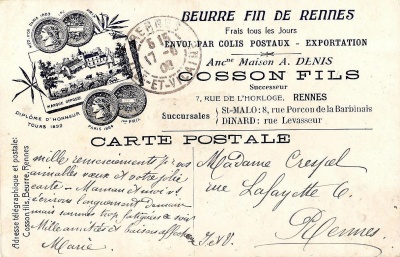 BEURRE FIN DE RENNES
Frais tous les Jours
ENVOI PAR COLIS POSTAUX - EXPORTATION
Ancne Maison A. DENIS
COSSON FILS
Successeur
7, RUE DE L'HORLOGE, RENNES
Succursales
St-MALO: 8, rue Porcon de la Barbinais
DINARD: rue Levasseur
MARQUE DÉPOSÉE
DIPLÔME D'HONNEUR
TOURS 1892
RENNES
6 15
17
ET-VILAINE
CARTE POSTALE
Adresse télégraphique et postale:
Cosson fils, Beurre, Rennes
mille remerciements pr vos
aimables vœux et votre jolie
carte - Maman et moi vs
écrirons longuement demain
mais sommes trop fatiguées ce soir
Mille amitiés et baisers affectueux
Marie
Madame Crespel
rue Lafayette 6
Rennes
I. et V.